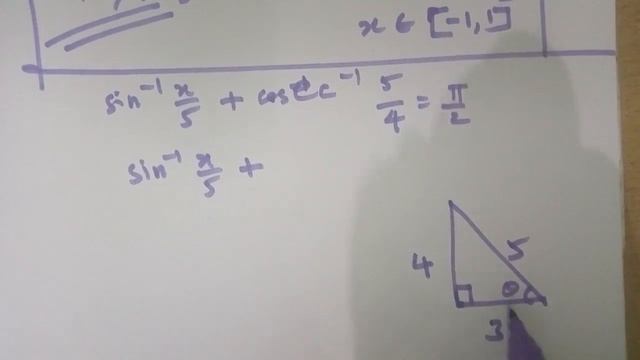 x ∈ [-1,1]
sin⁻¹ x/5 + cosec⁻¹ 5/4 = π/2
sin⁻¹ x/5 +
4 5
θ
3